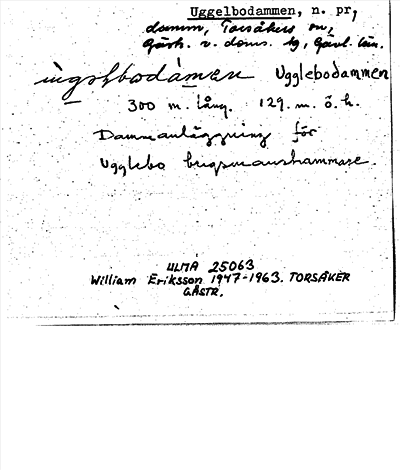 Uggelbodammen, n. pr,
damm, Torsåkers sn,
Gästr. v. doms. hg, Gävl. län.
Ugglebodammen
300 m. lång. 129. m. ö. h.
Dammanläggning för
Ugglebo brugsmanshammare.
ULMA 25063
William Eriksson 1947-1963. TORSÅKER
GÄSTR.